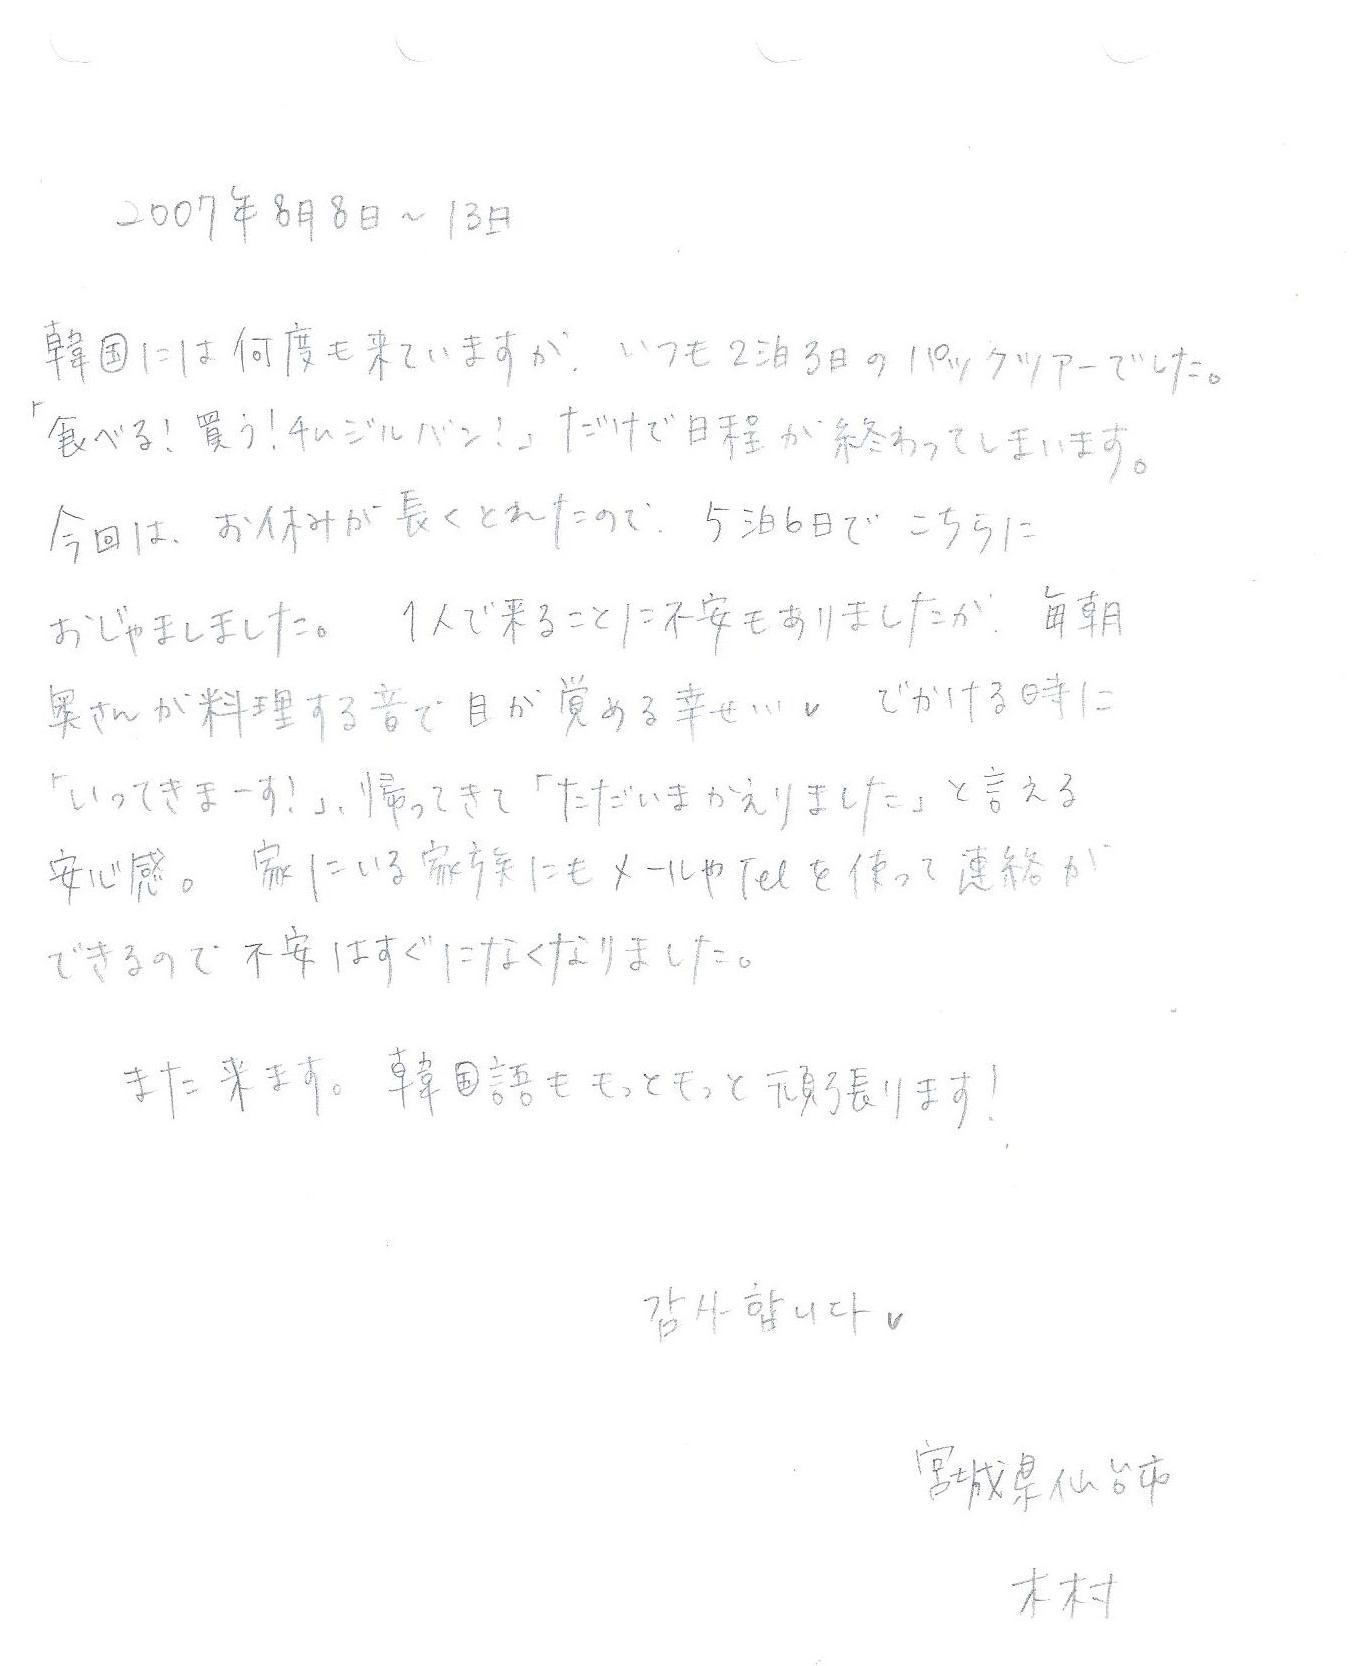 2007年8月8日～13日
韓国には何度も来ていますが、いつも2泊3日のパックツアーでした。
「食べる!買う!チムジルバン!」だけで日程が終わってしまいます。
今回は、お休みが長くとれたので、5泊6日でこちらに
おじゃましました。 1人で来ることに不安もありましたが、毎朝
奥さんが料理する音で目が覚める幸せ…♥ でかける時に
「いってきまーす!」、帰ってきて「ただいまかえりました」と言える
安心感。 家にいる家族にもメールやTelを使って連絡が
できるので不安はすぐになくなりました。
また来ます。韓国語ももっともっと頑張ります!
감사합니다♥
宮城県仙台市
木村